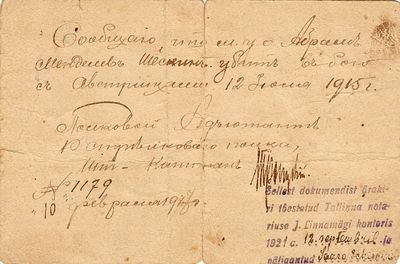 Сообщаю, что м. у. о Абрамъ
Менделевъ убитъ въ бою
съ Австрийцами 12 Июля 1915 г.
Полковой Адъютантъ
10 стрѣлковаго полка,
Шт-Капитанъ
№ 1179
"10" февраля 191
Sellest dokumendist ärakir-
ri tõestatud Tallinna nota-
riuse J. Linnamägi kontoris
1931 a. 12. septembril
päljaantud